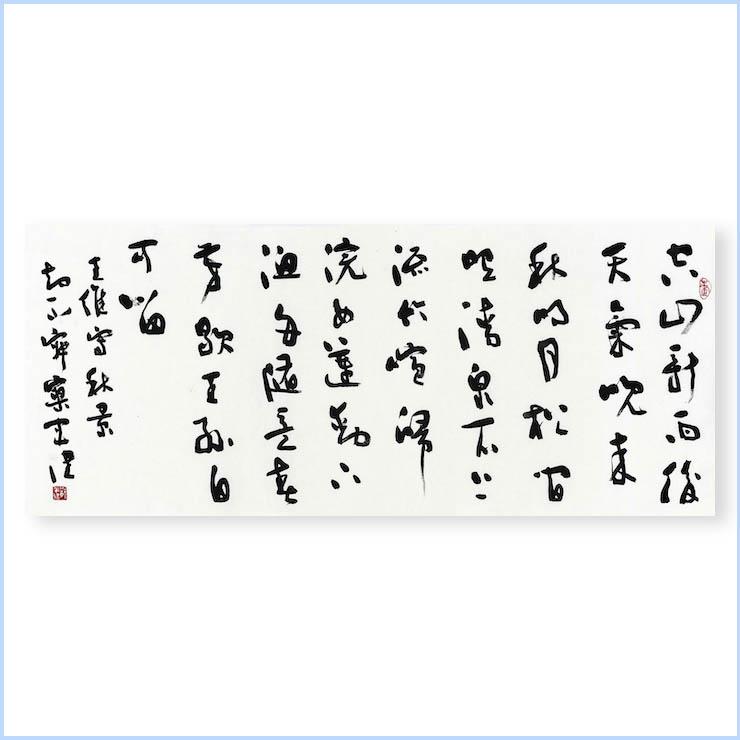 空山新雨後
天氣晚來
秋明月松間
照清泉石上
流竹喧歸
浣女蓮動下
漁舟隨意春
芳歇王孫自
可留
王維寫秋景